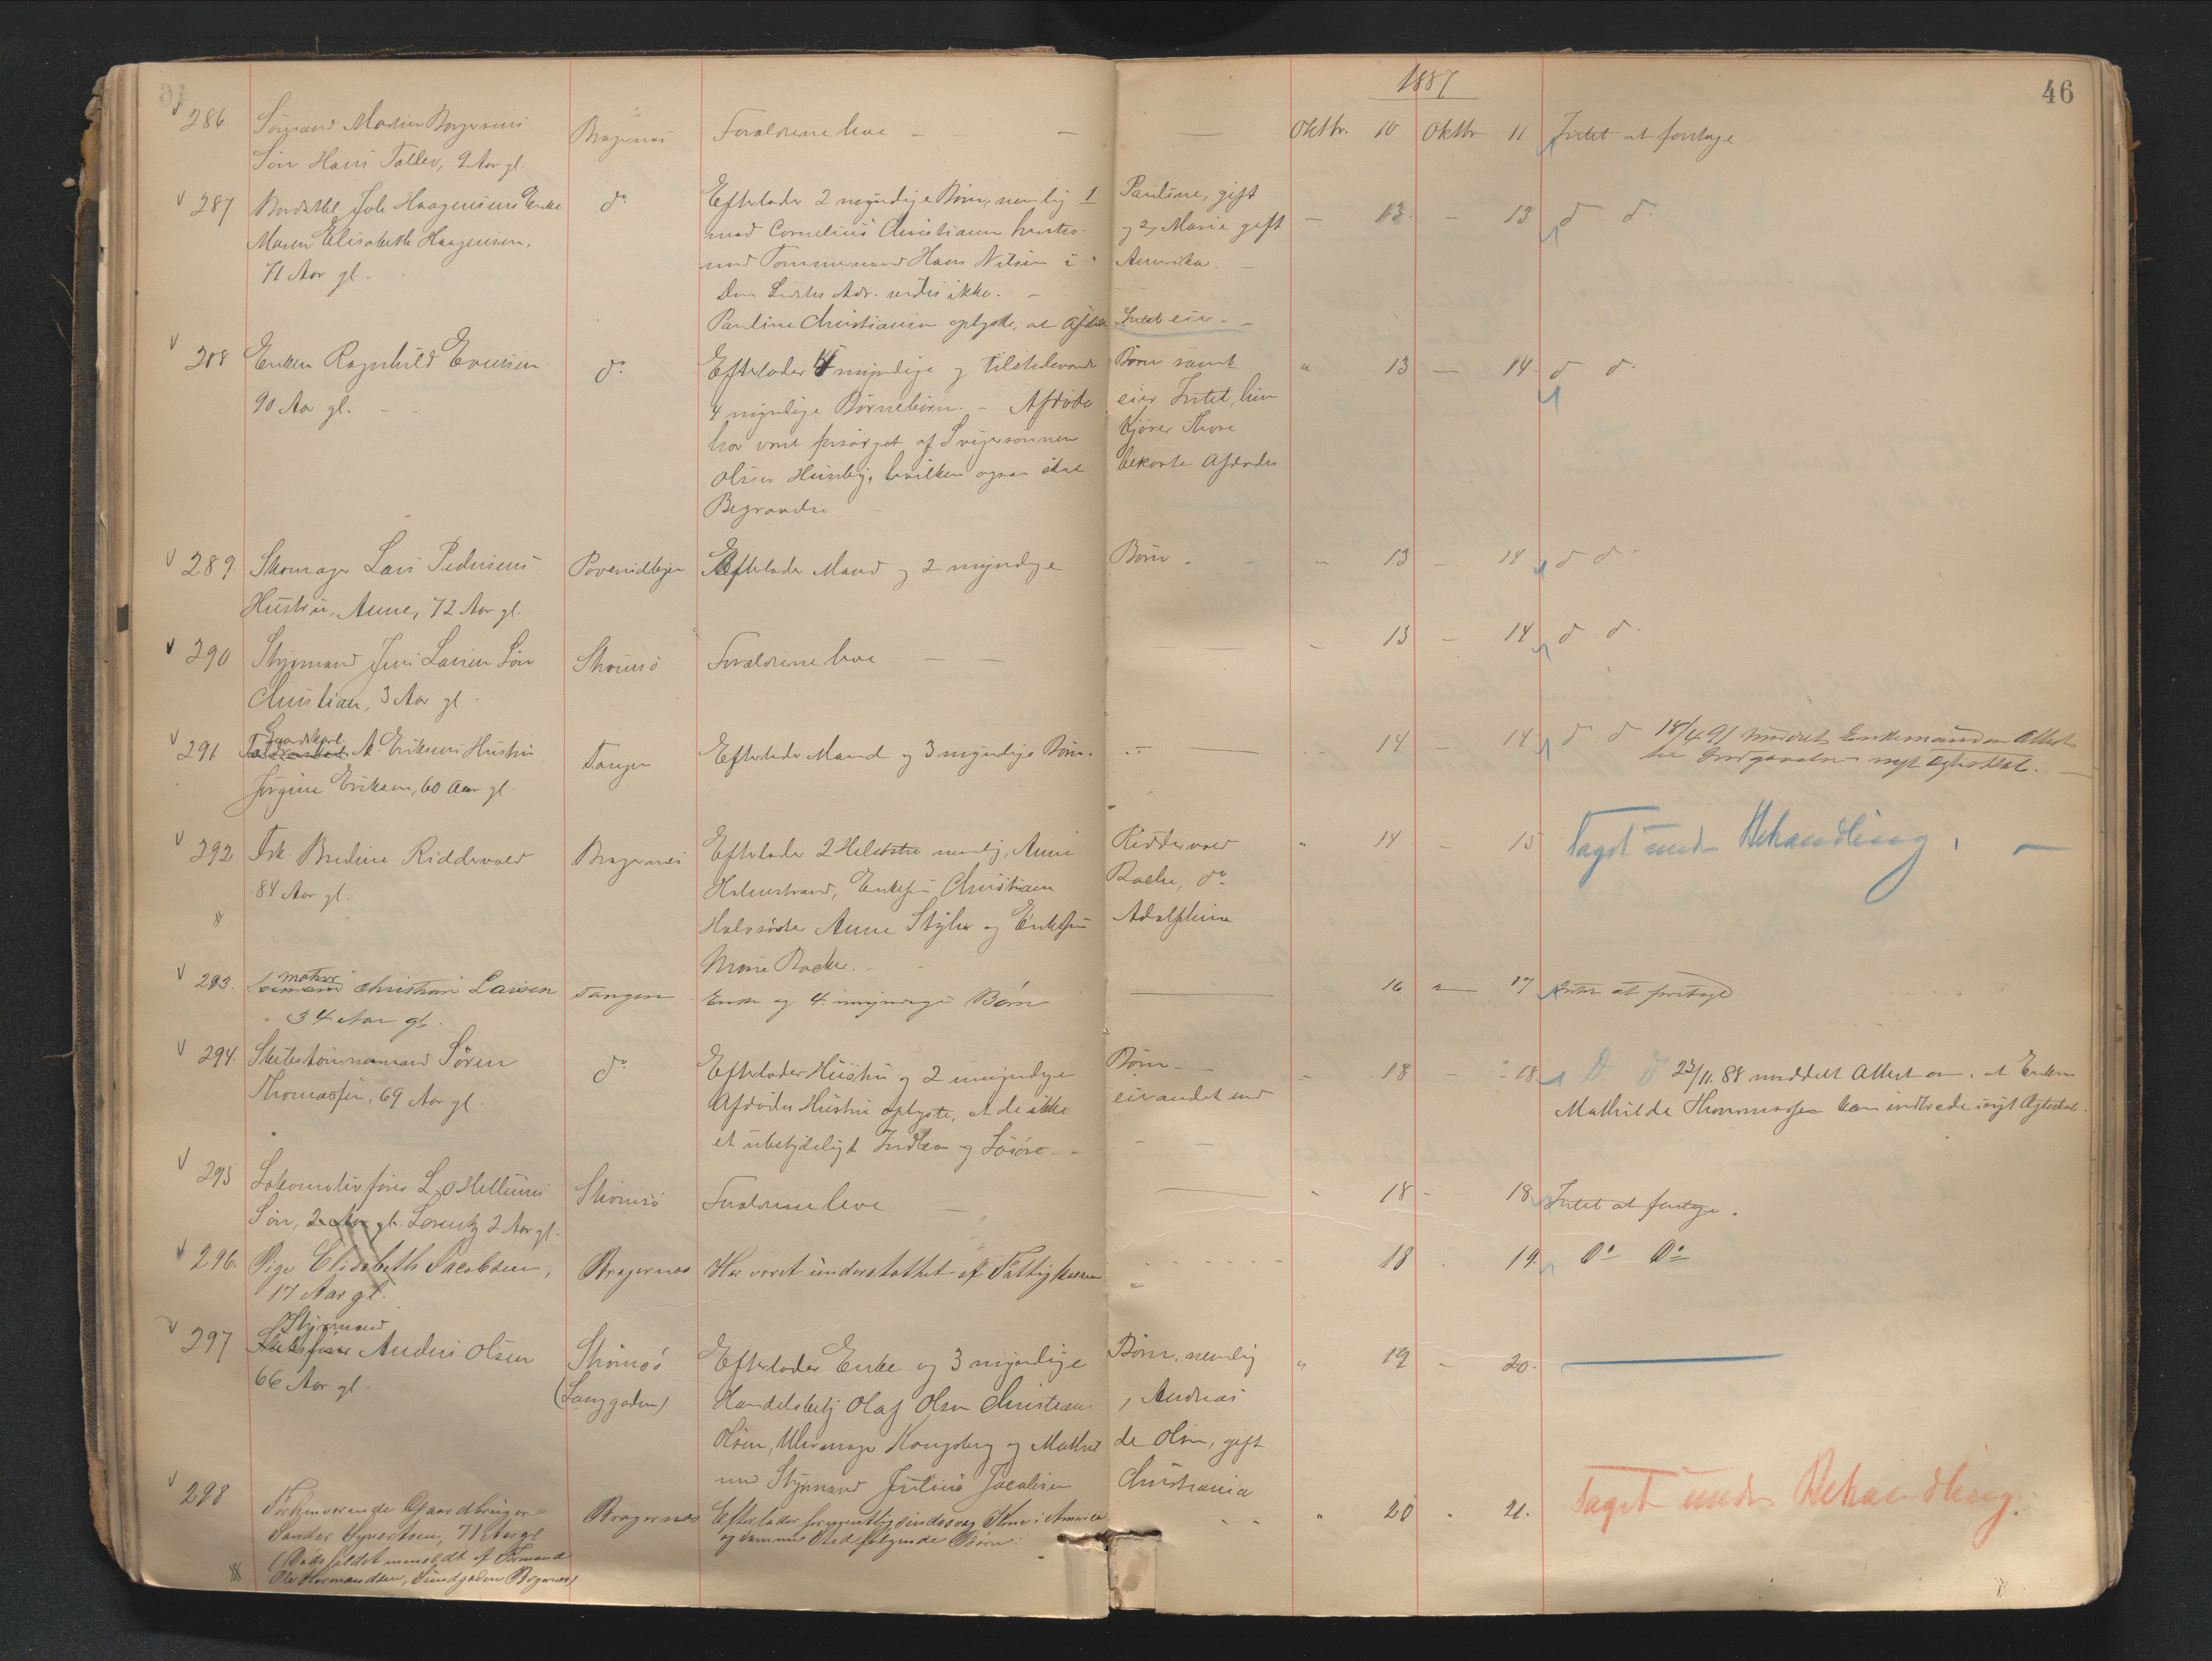 1887
46
286 Sømand Martin Børgesens Bragernæs Forældrene leve — — Oktbr. 10 Oktbr 11 Intet at foretage.
Søn Hans Tollev, 9 Aar gl.
287 Joh Haagensens Enke do Efterlader 2 myndige Børn, nemlig 1 Pauline, gift — 13 — 13 d d
Maren Elisabeth Haagensen, med Cornelius Christiansen og 2, Marie gift
71 Aar gl. med Tømmermand Hans Nilsen i Amerika.
Den Sidstes Adr. vides ikke. —
Pauline Christiansen oplyste, at Afdøde Intet eier. —
288 Enken Ragnhild Evensen do Efterlader 4 myndige og tilstedeværende Børn samt " 13 — 14 d d.
90 Aar gl. — 4 myndige Børnebørn. — Afdøde eier Intet, hun
har været forsørget af Svigersønnen Kjører Thore
Olsen Huseby, hvilken ogsaa skal bekoste Afdødes
Begravelse
289. Skomager Lars Pedersens Efterlader Mand og 2 myndige Børn. — " 13 — 14 d d
Hustru, Anne, 72 Aar gl.
290 Styrmand Jens Larsen Søn Strømsø Forældrene leve — — 13 — 14 d d.
Christian, 3 Aar gl.
Gaardskarl
291 A. Eriksens Hustru Tangen Efterlader Mand og 3 myndige Børn. — 14 — 14 d d 18/4 91 meddelt Enkemanden Attest
Jørgine Eriksen, 60 Aar gl. til Indgaaelse nyt Ægteskab. —
292 Frk. Bredine Riddervold Bragernæs Efterlader 2 Helsøstre nemlig, Anne Riddervold " 14 — 15 Taget under Behandling. —
84 Aar gl. Holmestrand, Enkefru Christiane Backe, do
Halvsøster Anne Styhr og Enkefru Adolphine
Marie Backe. —
Matros
293. Sømand Christian Larsen Tangen Enke og 4 umyndige Børn — 16 " — 17 Intet at foretage
34 Aar gl.
294. Skibstømmermand Søren do Efterlader Hustru og 2 umyndige Børn — 18 — 18 D d 23/11. 88 meddelt Attest om, at Enken
Thomassen, 69 Aar gl. Afdødes Hustru oplyste, at de ikke eier andet end Mathilde Thommassen kan indtræde i nyt Ægteskab.
et ubetydeligt Indbo og Løsøre. —
295 Lokomotivfører L. O Hellums Strømsø Forældrene leve — " 18 — 18 Intet at foretage.
Søn, 2 Aar gl. Lorentz 2 Aar gl.
296. Pige Elisabeth Jacobsen, Bragernæs Har været understøttet af Fattigkassen 18 . 19. Do Do
17 Aar gl.
Styrmand
297 Skibsfører Anders Olsen Strømsø Efterlader Enke og 3 myndige Børn, nemlig " 19 — 20. —
66 Aar gl. (Langgaden) Handelsbetj Olaf Olsen Christiania, Andreas
Olsen, Uhrmager Kongsberg og Mathilde Olsen, gift
med Styrmand Julius Jacobsen Christiania
298 Forhenværende Gaardbruger Bragernæs Efterlader formentlig sindssvag Kone i Amerika " 20 . 21. Taget under Behandling.
Sander Syvertsen, 71 Aar gl. og samme Sted følgende Børn:
(Dødsfaldet anmeldt af Formand
Ole Hermandsen, Sundgaden Bragernæs)